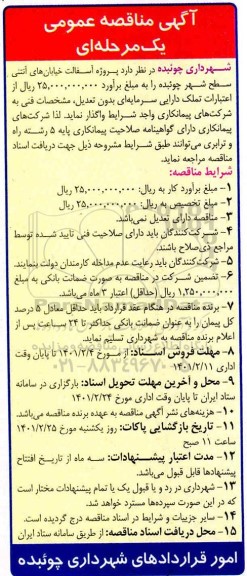 آگهی مناقصه عمومی
یک مرحله‌ای
شهرداری چوئبده در نظر دارد پروژه آسفالت خیابان‌های آتنی
سطح شهر چوئبده را به مبلغ برآورد ۲۵,۰۰۰,۰۰۰,۰۰۰ ریال از
اعتبارات تملک دارایی سرمایه‌ای بدون تعدیل، مشخصات فنی به
شرکت‌های پیمانکاری واجد شرایط واگذار نماید. لذا شرکت‌های
پیمانکاری دارای گواهینامه صلاحیت پیمانکاری پایه ۵ رشته راه
و ترابری می‌توانند طبق شرایط مشروحه ذیل جهت دریافت اسناد
مناقصه مراجعه نماید.
شرایط مناقصه:
۱- مبلغ برآورد کار به ریال: ۲۵,۰۰۰,۰۰۰,۰۰۰ ریال
۲- مبلغ تخصیص به ریال: ۲۵,۰۰۰,۰۰۰,۰۰۰ ریال
۳- مناقصه دارای تعدیل نمی‌باشد.
۴- شرکت‌کنندگان باید دارای صلاحیت فنی تایید شده توسط
مراجع ذی‌صلاح باشند.
۵- شرکت‌کنندگان باید رعایت عدم مداخله کارمندان دولت بنمایند.
۶- تضمین شرکت در مناقصه به صورت ضمانت بانکی به مبلغ
۱,۲۵۰,۰۰۰,۰۰۰ ریال (حداقل) اعتبار ۳ ماه می‌باشد.
۷- برنده مناقصه در هنگام عقد قرارداد باید حداقل معادل ۵ درصد
کل پیمان را به عنوان ضمانت بانکی حداکثر تا ۲۴ ساعت پس از
اعلام برنده مناقصه به شهرداری تسلیم نماید.
۸- مهلت فروش اسناد: از مورخ ۱۴۰۱/۲/۴ تا پایان وقت
اداری ۱۴۰۱/۲/۱۱
۹- محل و آخرین مهلت تحویل اسناد: بارگزاری در سامانه
ستاد ایران تا پایان وقت اداری مورخ ۱۴۰۱/۲/۲۴
۱۰- هزینه‌های نشر آگهی مناقصه به عهده برنده مناقصه می‌باشد.
۱۱- تاریخ بازگشایی پاکات: روز یکشنبه مورخ ۱۴۰۱/۲/۲۵
ساعت ۱۱ صبح
۱۲- مدت اعتبار پیشنهادات: سه ماه از تاریخ افتتاح
پیشنهادها قابل قبول می‌باشد.
۱۳- شهرداری در رد و یا قبول یک یا تمام پیشنهادات مختار است
که در این صورت سپرده‌ها مسترد خواهد شد.
۱۴- سایر جزییات و شرایط در اسناد مناقصه درج گردیده است.
۱۵- محل دریافت اسناد مناقصه: از طریق سامانه ستاد ایران
امور قراردادهای شهرداری چوئبده